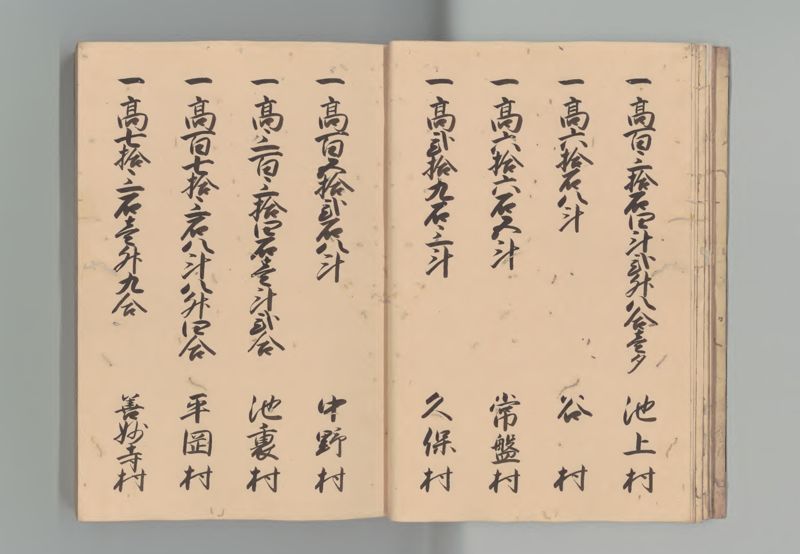 一高百三拾石四斗弐升八合壱夕 池上村
一高六拾石八斗 谷村
一高六拾六石五斗 常盤村
一高弐拾九石三斗 久保村
一高百五拾弐石八斗 中野村
一高三百三拾四石壱斗弐合 池裏村
一高百七拾三石八斗八升四合 平岡村
一高七拾三石壱升九合 善妙寺村